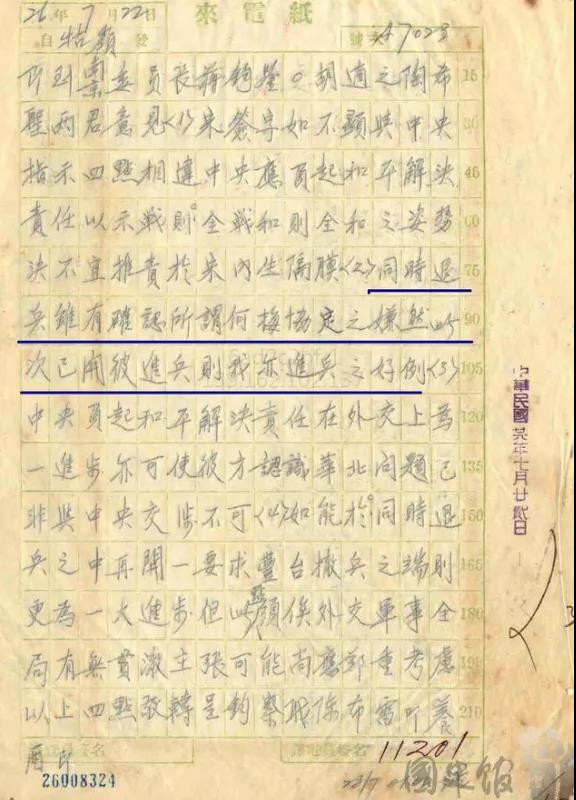 來電紙
26年7月22日
自牯嶺發 號次47023
即到京委員長蔣鈞鑒。胡適之陶希
聖兩君意見(1)宋簽字如不顯與中央
指示四點相違中央應負起和平解決
責任以示戰則全戰和則全和之姿勢
決不宜推責於宋內生隔膜(2)同時退
兵雖有確認所謂何梅協定之嫌然此
次已開彼進兵則我亦進兵之好例(3)
中央負起和平解決責任在外交上為
一進步亦可使彼方認識華北問題已
非與中央交涉不可(4)如能於同時退
兵之中再開一要求豐台撤兵之端則
更為一大進步但此點須俟外交軍事全
局有無貫澈主張可能尚應鄭重考慮
以上四點敬轉呈鈞察職陳布雷叩養
酉印
15
30
45
60
75
90
105
120
135
150
165
180
195
210
11201
26008324
中華民國廿六年七月廿貳日
國史館